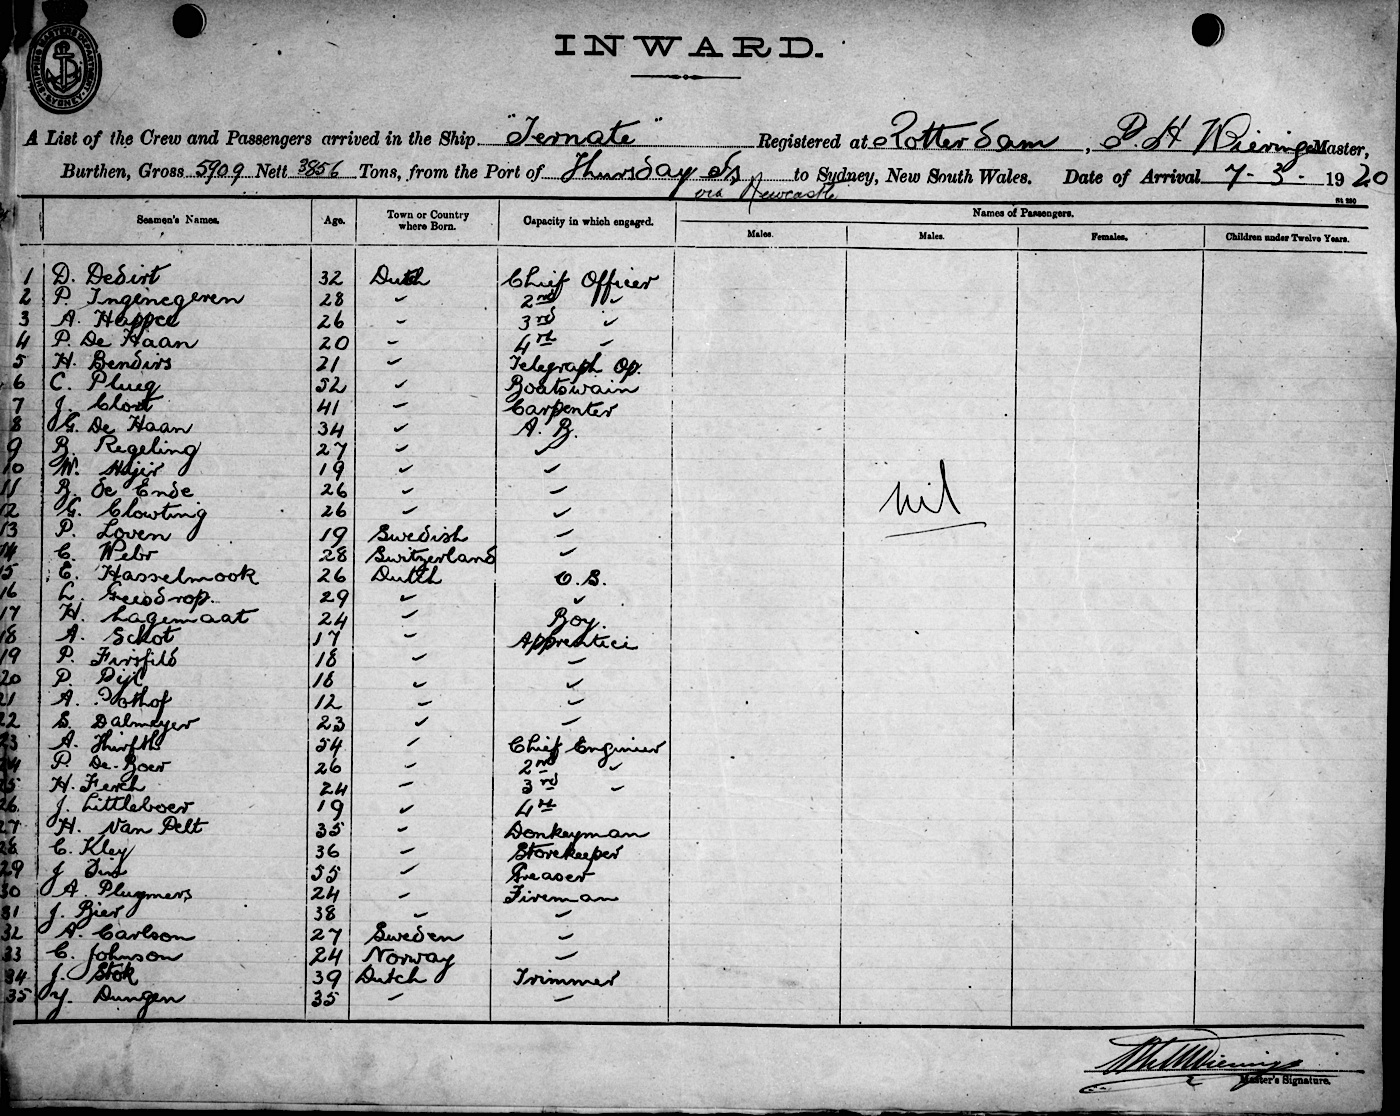 SHIPPING MASTERS DEPARTMENT SYDNEY
INWARD.
A List of the Crew and Passengers arrived in the Ship "Ternate" Registered at Rotterdam, P. H Wieringa Master,
Burthen, Gross 5909 Nett 3856 Tons, from the Port of Thursday Is to Sydney, New South Wales. Date of Arrival 7-3-1920
via Newcastle
Seamen's Names. Age. Town or Country where Born. Capacity in which engaged. Names of Passengers.
Males. Males. Females. Children under Twelve Years.
1 D. Dedirt 32 Dutch Chief Officer
2 P. Ingenegeren 28 " 2nd "
3 A. Happee 26 " 3rd "
4 P. De Haan 20 " 4th "
5 H. Bendirs 21 " Telegraph Op.
6 C. Plueg 52 " Boatswain
7 J. Clout 41 " Carpenter
8 G. De Haan 34 " A. B.
9 B. Regeling 27 " "
10 W. 19 " "
11 B. de Ende 26 " "
12 G. Clowting 26 " "
nil
13 P. Loven 19 Swedish "
14 C. Webr 28 Switzerland "
15 E. Hasselmook 26 Dutch O.S.
16 L. Geesdrop. 29 " "
17 H. Lagemaat 24 " Boy.
18 A. Schot 17 " Apprentici
19 P. Firsfild 18 " "
20 P. Dijl 18 " "
21 A. Pothof 12 " "
22 S. Dalmeyer 23 " "
23 A. 54 " Chief Enginier
24 P. De-Boer 26 " 2nd "
25 H. Ferch 24 " 3rd "
26 J. Littleboer 19 " 4th
27 H. Van Pelt 35 " Donkeyman
28 C. Kley 36 " Storekeeper
29 J 55 " Greaser
30 A. Plugmers 24 " Fireman
31 J. Bier 38 " "
32 A. Carlson 27 Sweden "
33 C. Johnson 24 Norway "
34 J. Stok 39 Dutch Trimmer
35 Y. Dungen 35 " "
Master's Signature.